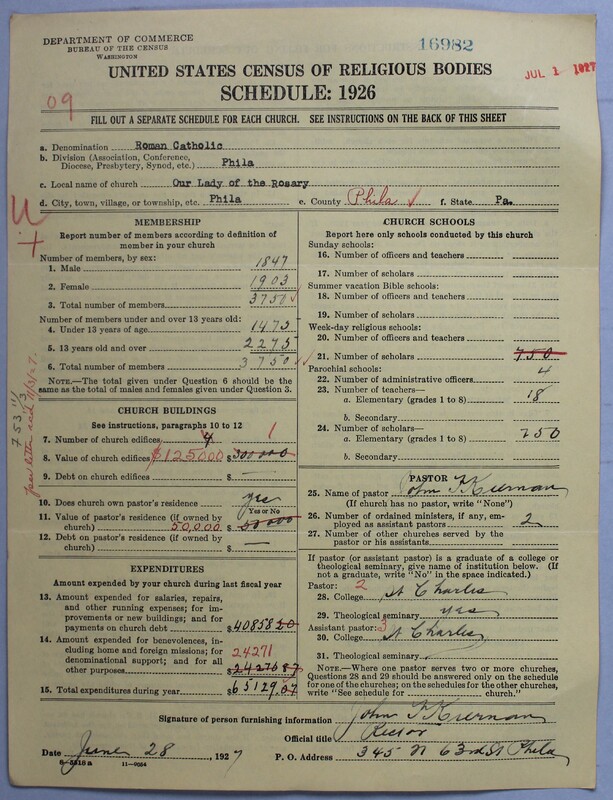 DEPARTMENT OF COMMERCE
BUREAU OF THE CENSUS
WASHINGTON
16982
JUL 1 1927
UNITED STATES CENSUS OF RELIGIOUS BODIES
SCHEDULE: 1926
09
FILL OUT A SEPARATE SCHEDULE FOR EACH CHURCH. SEE INSTRUCTIONS ON THE BACK OF THIS SHEET
a. Denomination Roman Catholic
b. Division (Association, Conference, Diocese, Presbytery, Synod, etc.) Phila
c. Local name of church Our Lady of the Rosary
d. City, town, village, or township, etc. Phila e. County Phila f. State Pa.
MEMBERSHIP
Report number of members according to definition of
member in your church
Number of members, by sex:
1. Male 1847
2. Female 1903
3. Total number of members 3750
Number of members under and over 13 years old:
4. Under 13 years of age 1475
5. 13 years old and over 2275
6. Total number of members 3750
NOTE.—The total given under Question 6 should be the
same as the total of males and females given under Question 3.
CHURCH BUILDINGS
See instructions, paragraphs 10 to 12
7. Number of church edifices 4 1
8. Value of church edifices $125000 $300000
9. Debt on church edifices $
10. Does church own pastor's residence yes
Yes or No
11. Value of pastor's residence (if owned by
church) 50,000 $50000
12. Debt on pastor's residence (if owned by
church) $
EXPENDITURES
Amount expended by your church during last fiscal year
13. Amount expended for salaries, repairs,
and other running expenses; for im-
provements or new buildings; and for
payments on church debt $40858 20
14. Amount expended for benevolences, in-
cluding home and foreign missions; for
denominational support; and for all
other purposes 24271 $24270 87
15. Total expenditures during year $65129.07
CHURCH SCHOOLS
Report here only schools conducted by this church
Sunday schools:
16. Number of officers and teachers
17. Number of scholars
Summer vacation Bible schools:
18. Number of officers and teachers
19. Number of scholars
Week-day religious schools:
20. Number of officers and teachers
21. Number of scholars 750
Parochial schools:
22. Number of administrative officers 4
23. Number of teachers—
a. Elementary (grades 1 to 8) 18
b. Secondary
24. Number of scholars—
a. Elementary (grades 1 to 8) 750
b. Secondary
PASTOR
25. Name of pastor John F Kiernan
(If church has no pastor, write "None")
26. Number of ordained ministers, if any, em-
ployed as assistant pastors 2
27. Number of other churches served by the
pastor or his assistants
If pastor (or assistant pastor) is a graduate of a college or
theological seminary, give name of institution below. (If
not a graduate, write "No" in the space indicated.)
Pastor: 2
28. College St Charles
29. Theological seminary yes
Assistant pastor: 3
30. College St Charles
31. Theological seminary
NOTE.—Where one pastor serves two or more churches,
Questions 28 and 29 should be answered only on the schedule
for one of the churches; on the schedules for the other churches,
write "See schedule for church."
Signature of person furnishing information John F Kiernan
Official title Rector
Date June 28, 1927 P. O. Address 345 N 63rd St Phila
8-5318 a 11-9554